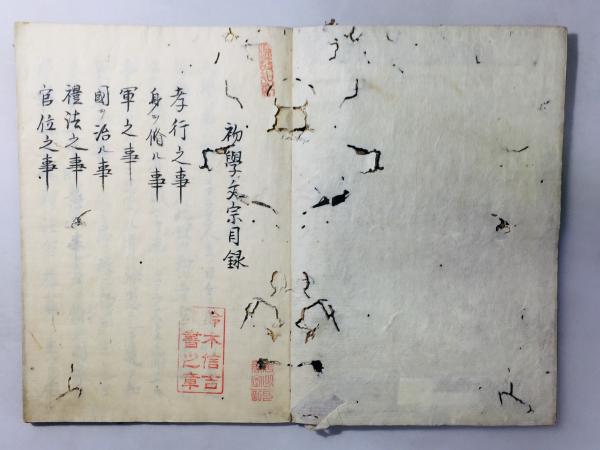 初學文宗目録
孝行之事
身ヲ脩ル事
軍之事
國ヲ治ル事
禮法之事
官位之事
鈴木信吉
書之章